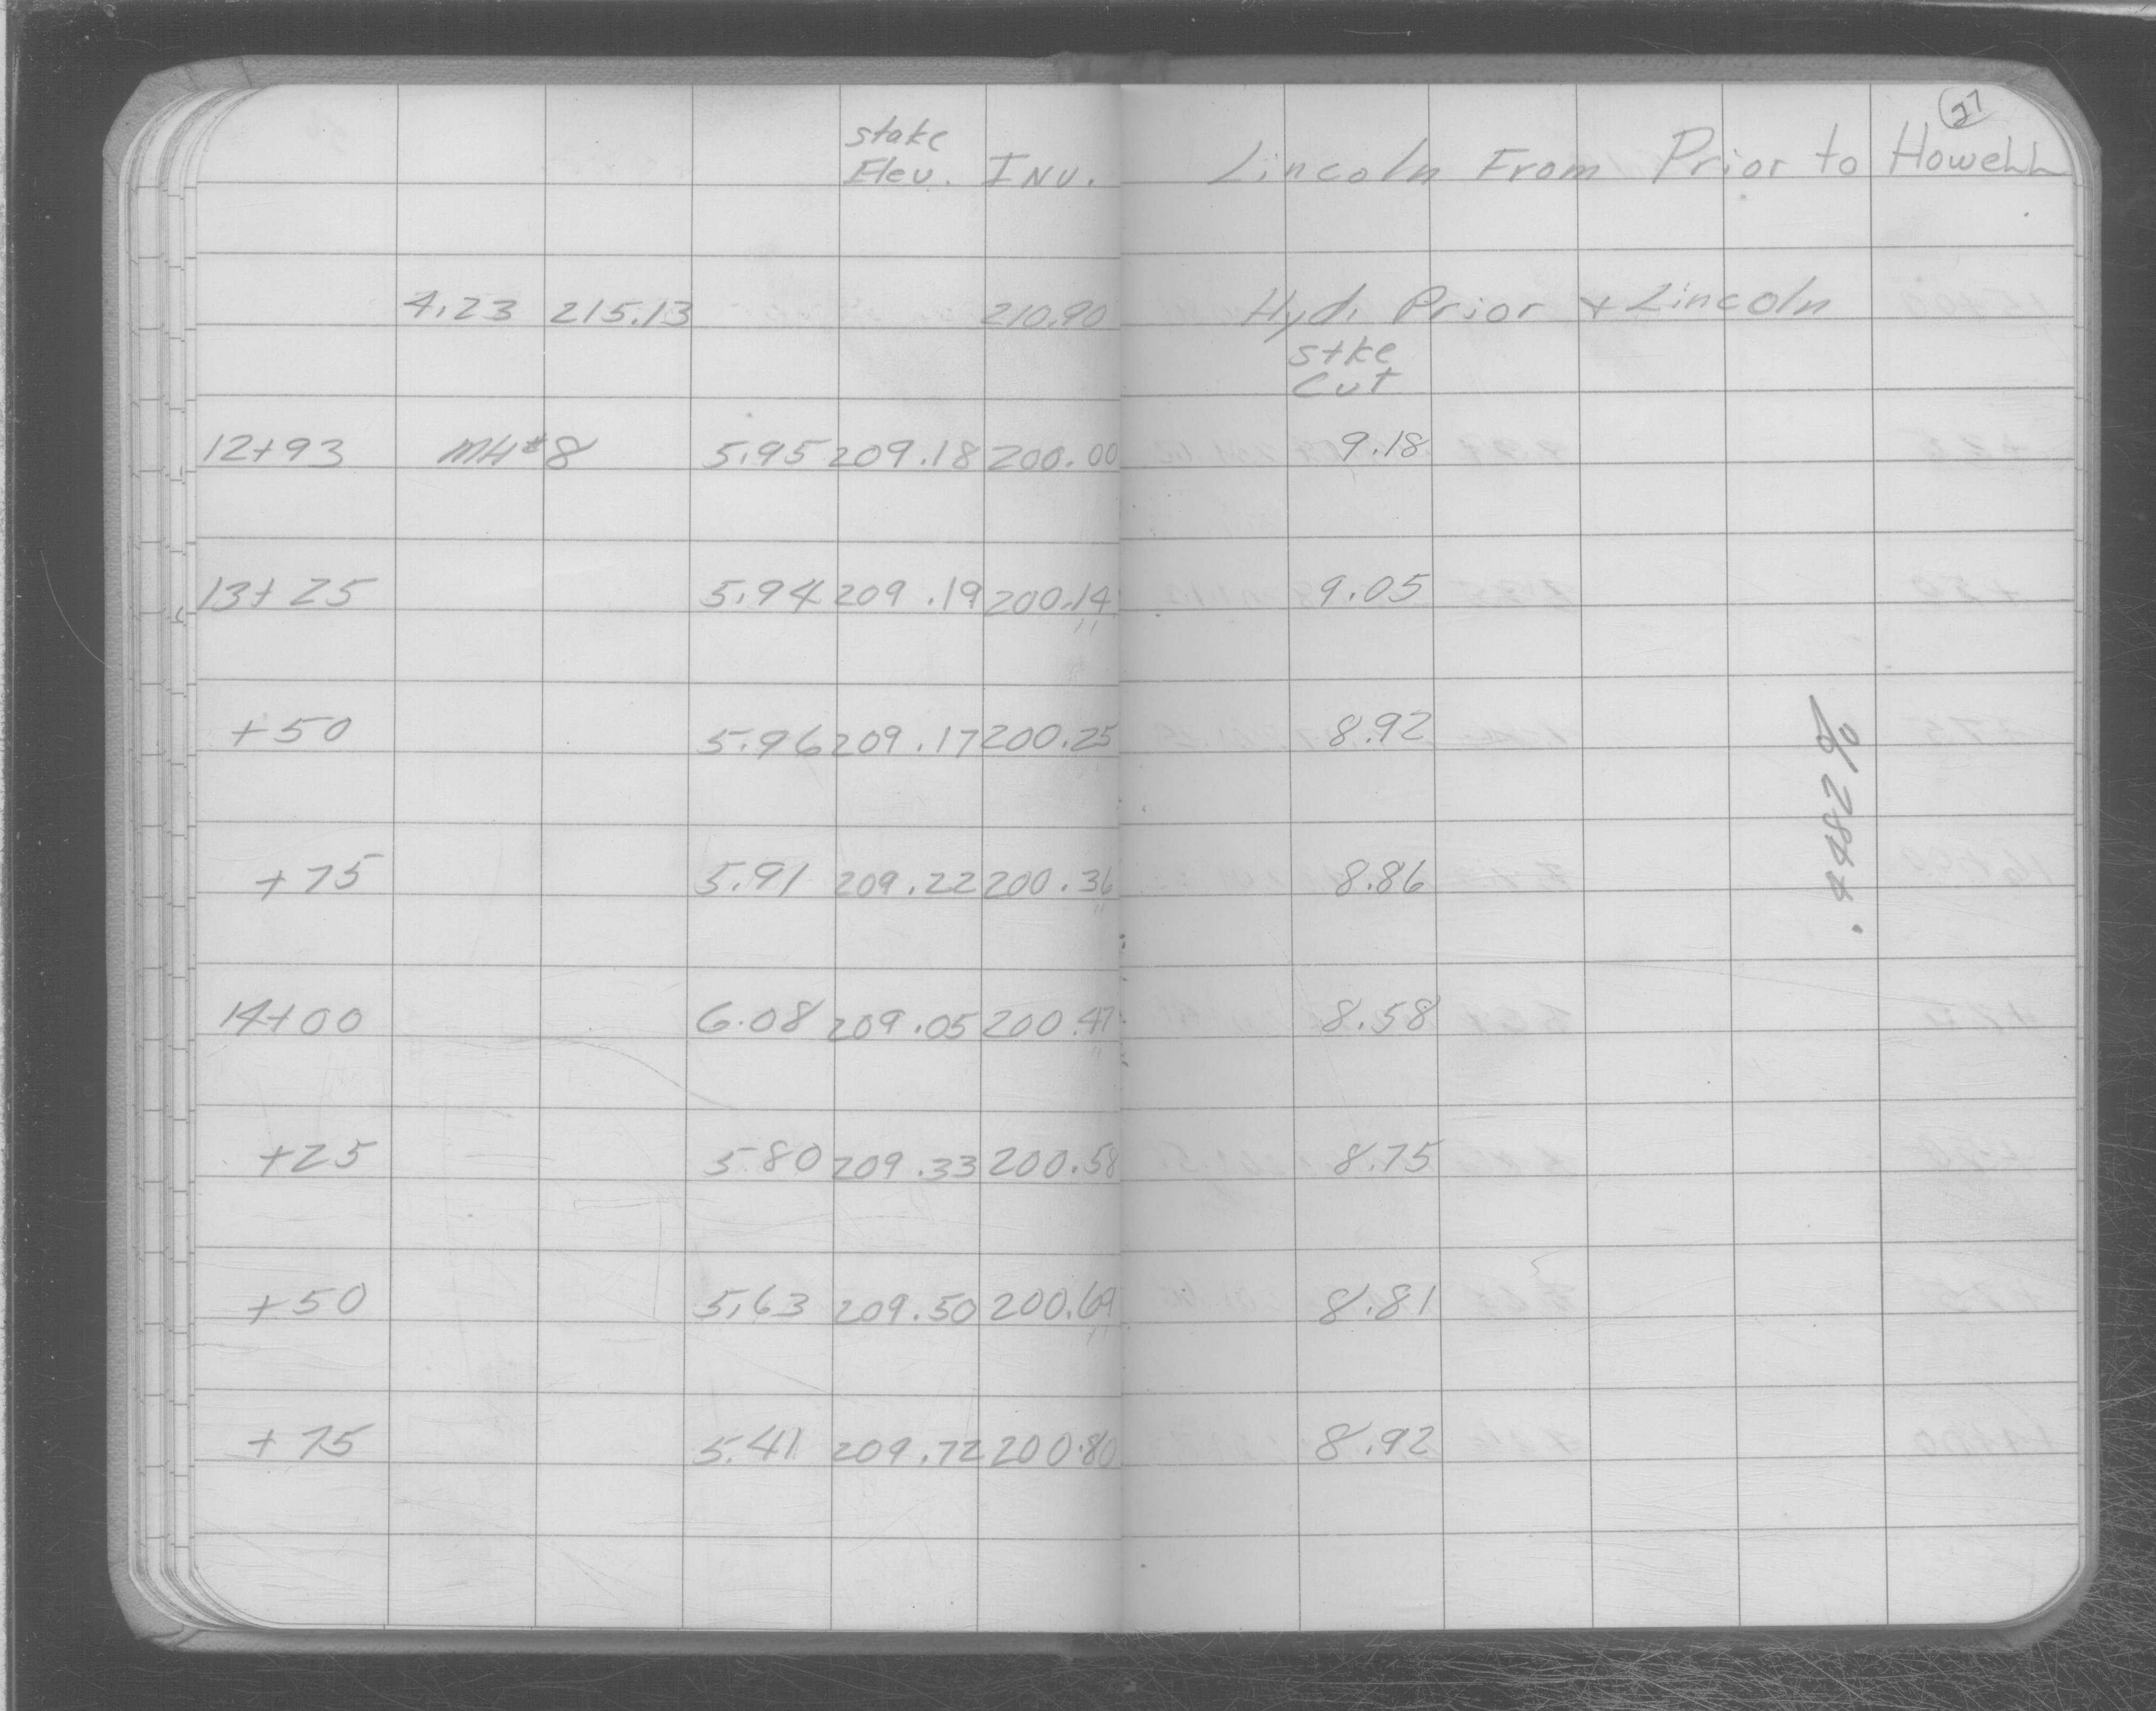 27
stake
Elev. INV. Lincoln From Prior to Howell
4.23 215.13 210.90 Hyd. Prior + Lincoln
stke
Cut
12+93 MH#8 5.95 209.18 200.00 9.18
13+25 5.94 209.19 200.14 9.05
+50 5.96 209.17 200.25 8.92
+75 5.91 209.22 200.36 8.86
14+00 6.08 209.05 200.47 8.58
+25 5.80 209.33 200.58 8.75
+50 5.63 209.50 200.69 8.81
+75 5.41 209.72 200.80 8.92
.4482%